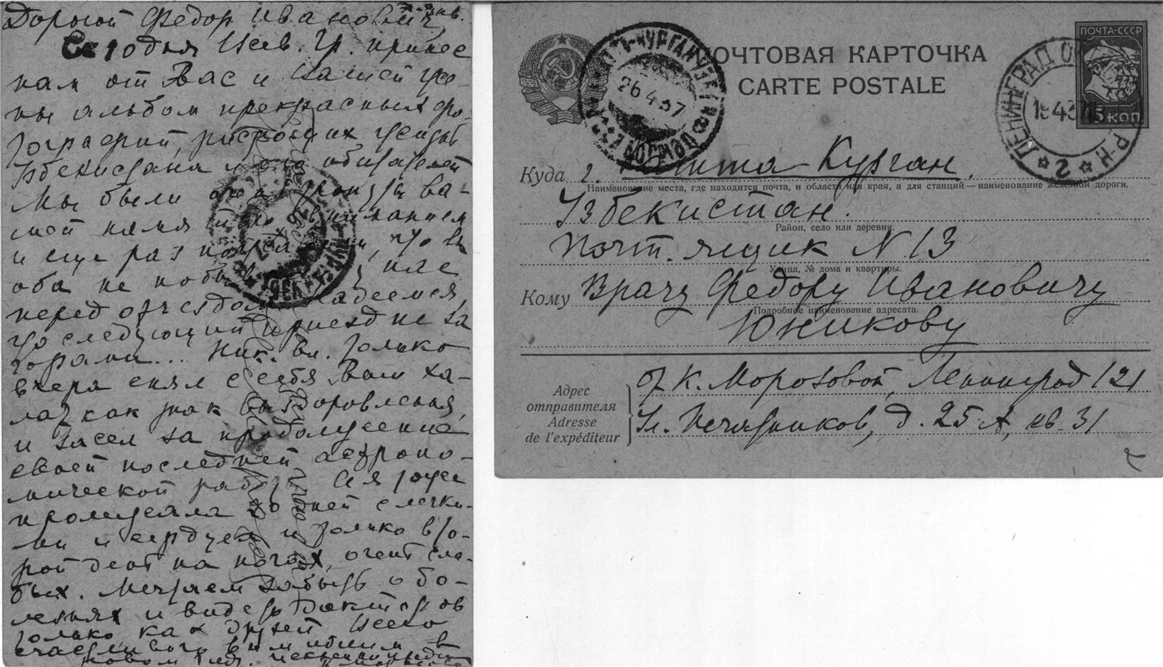 Дорогой Федор Иванович,
Сегодня Всев. Гр. принес
нам от Вас и Вашей же-
ны альбом прекрасных фо-
тографий, рисующих
Узбекистана и его обитателей
Мы были очень тронуты ва-
шей памятью и вниманием
и еще раз что вы
оба не побы нас
перед отъездом Надеемся,
что следующий приезд не за
горами... Ник. Ал. только
вчера снял с себя Ваш ха-
лат как знак выздоровления,
и засел за продолжение
своей последней астроно-
мической работы. А я тоже
пролежала 10 дней с легки-
ми и сердцем и только вто-
рой день на ногах, очень сла-
бых. Мечтаем забыть о бо-
лезнях и видеть докторов
только как друзей Всего
счастливого вам обоим в
новом году.
ПОЧТОВАЯ КАРТОЧКА
CARTE POSTALE
ПОЧТА-СССР
15 КОП
26.4.37
ЛЕНИНГРАД
2
Куда г. Курган.
Наименование места, где находится почта, и области или края, а для станций—наименование железной дороги.
Узбекистан.
Район, село или деревня.
почт. ящик N 13
Улица, № дома и квартиры.
Кому Врачу Федору Ивановичу
Подробное наименование адресата.
Юникову
Адрес
отправителя
Adresse
de l'expéditeur
От К. Морозовой, Ленинград 121
Ул. Печатников, д. 25 А, кв. 31